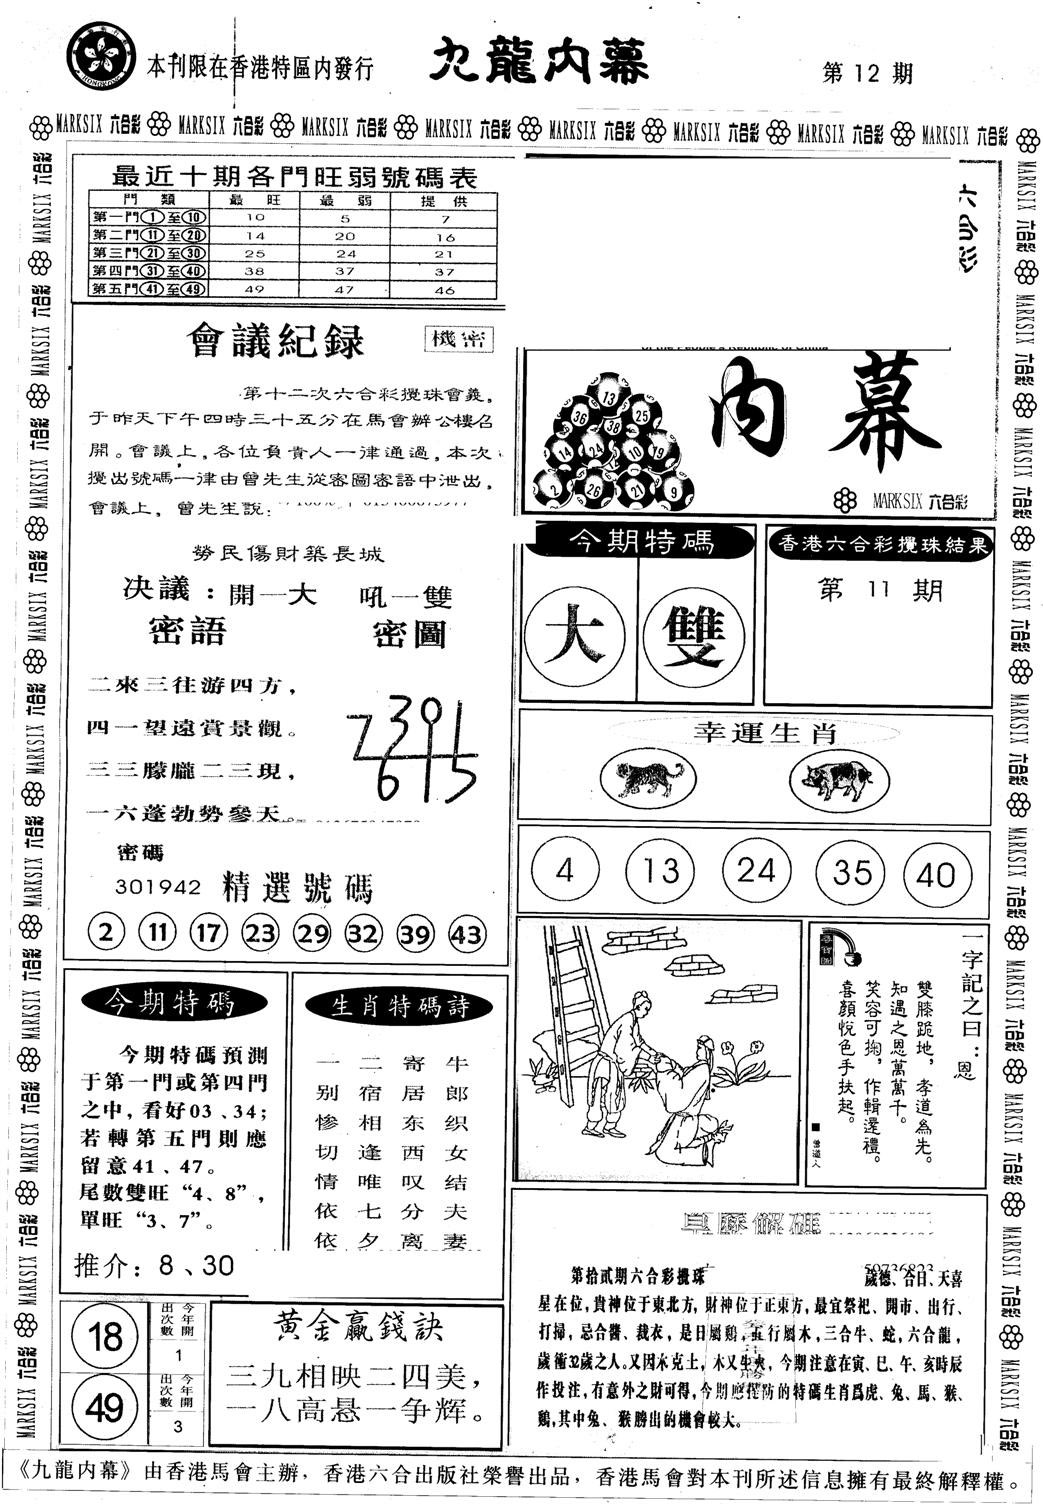 本刊限在香港特區内發行
九龍内幕
第 12 期
MARKSIX 六合彩 MARKSIX 六合彩 MARKSIX 六合彩 MARKSIX 六合彩 MARKSIX 六合彩 MARKSIX 六合彩 MARKSIX 六合彩 MARKSIX 六合彩
最近十期各門旺弱號碼表
門 類 最 旺 最 弱 提 供
第一門①至⑩ 10 5 7
第二門⑪至⑳ 14 20 16
第三門㉑至㉚ 25 24 21
第四門㉛至㊵ 38 37 37
第五門㊶至㊾ 49 47 46
會議紀録
機密
第十二次六合彩攪珠會義,
于昨天下午四時三十五分在馬會辦公樓召
開。會議上,各位負責人一律通過,本次
攪出號碼一律由曾先生從密圖密語中泄出,
會議上,曾先生說:
勞民傷財築長城
决議:開一大 吼一雙
密語 密圖
二來三往游四方,
四一望遠賞景觀。
三三朦朧二三現,
一六蓬勃勢參天。
密碼
301942 精選號碼
2 11 17 23 29 32 39 43
内幕
13
36 25
38
14 24 10 19
2 26 21 9
MARKSIX 六合彩
今期特碼
大 雙
香港六合彩攪珠結果
第 11 期
幸運生肖
4 13 24 35 40
一字記之曰:恩
雙膝跪地,孝道為先。
知遇之恩萬萬千。
笑容可掬,作輯還禮。
喜顏悅色手扶起。
■曾道人
今期特碼
今期特碼預測
于第一門或第四門
之中,看好03、34;
若轉第五門則應
留意41、47。
尾數雙旺“4、8”,
單旺“3、7”。
推介: 8、30
生肖特碼詩
一 二 寄 牛
别 宿 居 郎
惨 相 东 织
切 逢 西 女
情 唯 叹 结
依 七 分 夫
依 夕 离 妻
18 今年開出次數 1
49 今年開出次數 3
黄金赢錢訣
三九相映二四美,
一八高悬一争辉。
第拾貳期六合彩攪珠 歲德、合日、天喜
星在位,貴神位于東北方,財神位于正東方,最宜祭祀、開市、出行、
打掃,忌合醬、裁衣,是日屬鷄,五行屬木,三合牛、蛇,六合龍,
歲衝32歲之人。又因水克土,木又生火,今期注意在寅、巳、午、亥時辰
作投注,有意外之財可得,今期應提防的特碼生肖爲虎、兔、馬、猴、
鷄,其中兔、猴勝出的機會較大。
《九龍内幕》由香港馬會主辦,香港六合出版社榮譽出品,香港馬會對本刊所述信息擁有最終解釋權。